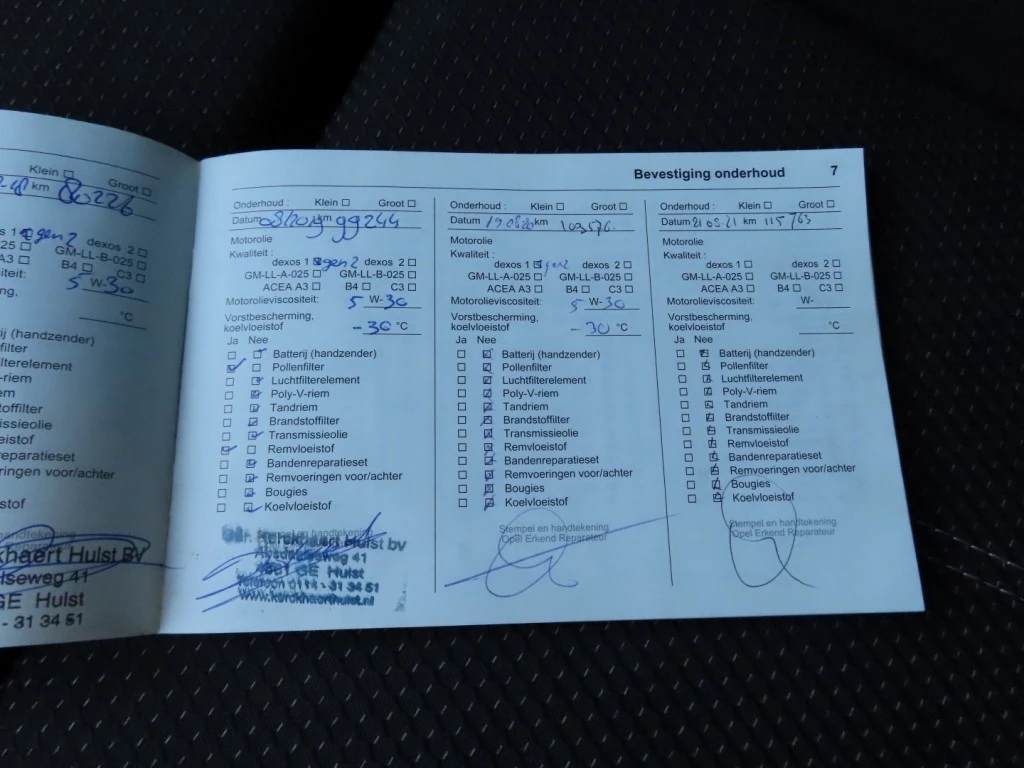 Klein ☐ Groot ☐
km 80226
dexos 2 ☐
GM-LL-B-025 ☐
A3 ☐ B4 ☐ C3 ☐
5 W-30
°C
(handzender)
eistof
eringen voor/achter
stof
khaert Hulst BV
lseweg 41
GE Hulst
- 31 34 51
Bevestiging onderhoud 7
Onderhoud : Klein ☐ Groot ☐
Datum 08/2019 km 99244
Motorolie
Kwaliteit :
dexos 1 ☑ gen2 dexos 2 ☐
GM-LL-A-025 ☐ GM-LL-B-025 ☐
ACEA A3 ☐ B4 ☐ C3 ☐
Motorolieviscositeit: 5 W-30
Vorstbescherming,
koelvloeistof -30 °C
Ja Nee
☐ ☑ Batterij (handzender)
☑ ☐ Pollenfilter
☐ ☑ Luchtfilterelement
☐ ☑ Poly-V-riem
☐ ☑ Tandriem
☐ ☑ Brandstoffilter
☐ ☑ Transmissieolie
☑ ☐ Remvloeistof
☐ ☑ Bandenreparatieset
☐ ☑ Remvoeringen voor/achter
☐ ☑ Bougies
☐ ☑ Koelvloeistof
Stempel en handtekening
Kerckhaert Hulst bv
41
4561 GE Hulst
Telefoon 0114 - 31 34 51
www.kerckhaerthulst.nl
Onderhoud : Klein ☐ Groot ☐
Datum 19.08.20 km 103576
Motorolie
Kwaliteit :
dexos 1 ☑ gen2 dexos 2 ☐
GM-LL-A-025 ☐ GM-LL-B-025 ☐
ACEA A3 ☐ B4 ☐ C3 ☐
Motorolieviscositeit: 5 W-30
Vorstbescherming,
koelvloeistof -30 °C
Ja Nee
☐ ☑ Batterij (handzender)
☐ ☑ Pollenfilter
☐ ☑ Luchtfilterelement
☐ ☑ Poly-V-riem
☐ ☑ Tandriem
☐ ☑ Brandstoffilter
☐ ☑ Transmissieolie
☐ ☑ Remvloeistof
☐ ☑ Bandenreparatieset
☐ ☑ Remvoeringen voor/achter
☐ ☑ Bougies
☐ ☑ Koelvloeistof
Stempel en handtekening
Opel Erkend Reparateur
Onderhoud : Klein ☐ Groot ☐
Datum 21 08-21 km 115763
Motorolie
Kwaliteit :
dexos 1 ☐ dexos 2 ☐
GM-LL-A-025 ☐ GM-LL-B-025 ☐
ACEA A3 ☐ B4 ☐ C3 ☐
Motorolieviscositeit: W-
Vorstbescherming,
koelvloeistof °C
Ja Nee
☐ ☑ Batterij (handzender)
☐ ☑ Pollenfilter
☐ ☑ Luchtfilterelement
☐ ☑ Poly-V-riem
☐ ☑ Tandriem
☐ ☑ Brandstoffilter
☐ ☑ Transmissieolie
☐ ☑ Remvloeistof
☐ ☑ Bandenreparatieset
☐ ☑ Remvoeringen voor/achter
☐ ☑ Bougies
☐ ☑ Koelvloeistof
Stempel en handtekening
Opel Erkend Reparateur